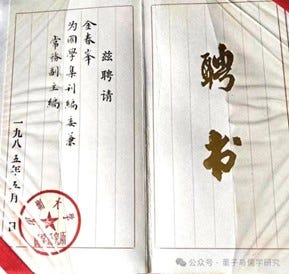 聘书
兹聘请
金春峯
为国學集刊编委兼
常務副主编
一九八五年五月 日
公众号·董子与儒学研究